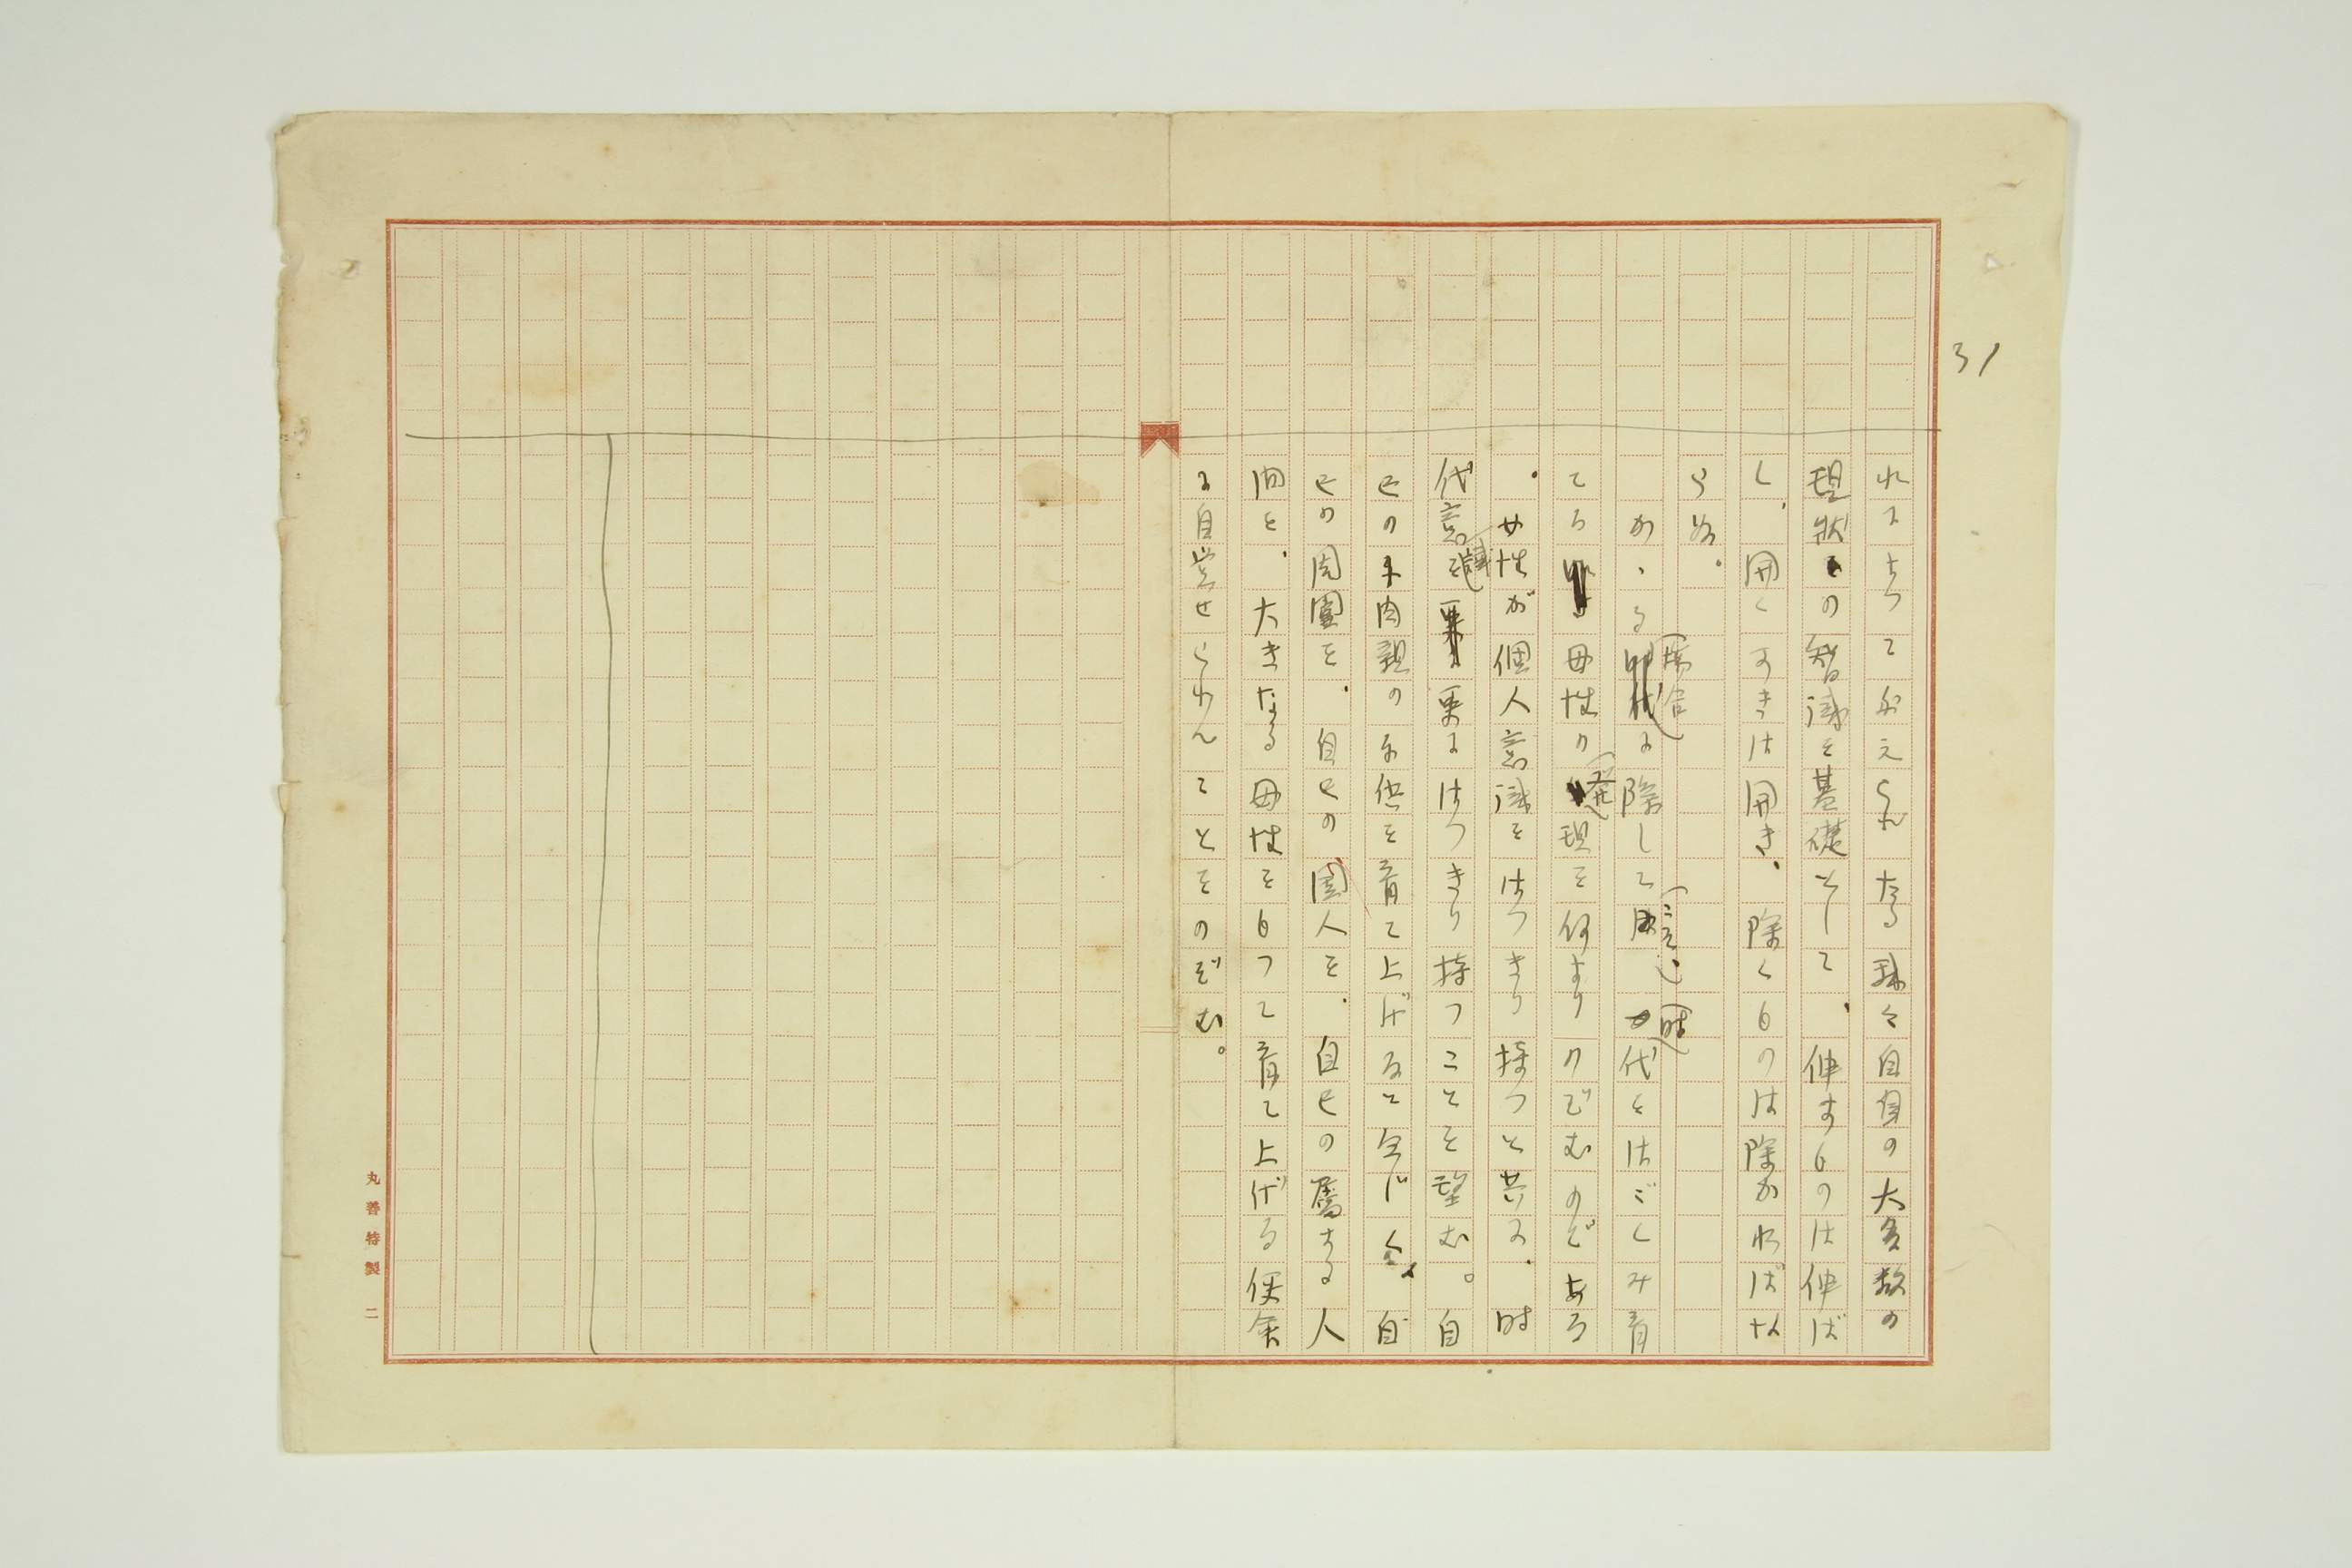 31
れによつて与えられたる我々自身の大多数の
現状の智識を基礎として、伸すものは伸ば
し、開くすきは開き、除くものは除かねばな
らぬ。
かゝる場合に際して時代をはごくみ育
てる母性の発現を何よりのぞむのである
女性が個人意識をはつきり持つと共に、時
代意識を更にはつきり持つことを望む。自
己の肉親の子供を育て上げると全じく、自
己の周囲を、自己の国人を、自己の属する人
間を、大きなる母性をもつて育て上げる使命
に自覚せられんことをのぞむ。
丸善特製 二